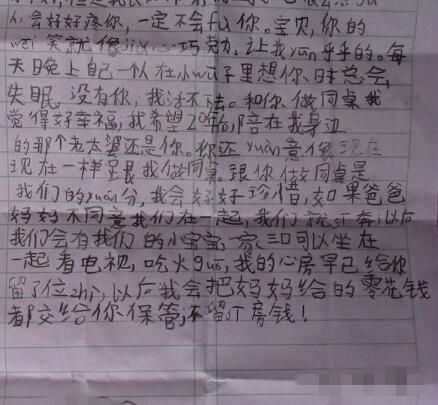 会好好疼你,一定不会fu你。宝贝,你的
wei笑就像jiɑ心巧克力,让我yun乎乎的。每
天晚上自己一个人在小wu子里想你,时总会
失眠,没有你,我活不下去。和你做同桌我
觉得好幸福,我希望20年后,陪在我身边
的那个老太婆还是你。你还yuàn意像现在
现在一样宠我做同桌,跟你做同桌是
我们的yuán分,我会好好珍惜,如果爸爸
妈妈不同意我们在一起,我们就私奔,以后
我们会有我们的小宝宝,一家三口可以坐在
一起看电视,吃火guō,我的心房早已给你
留了位zhi,以后我会把妈妈给的零花钱
都交给你保管,不留一房钱!